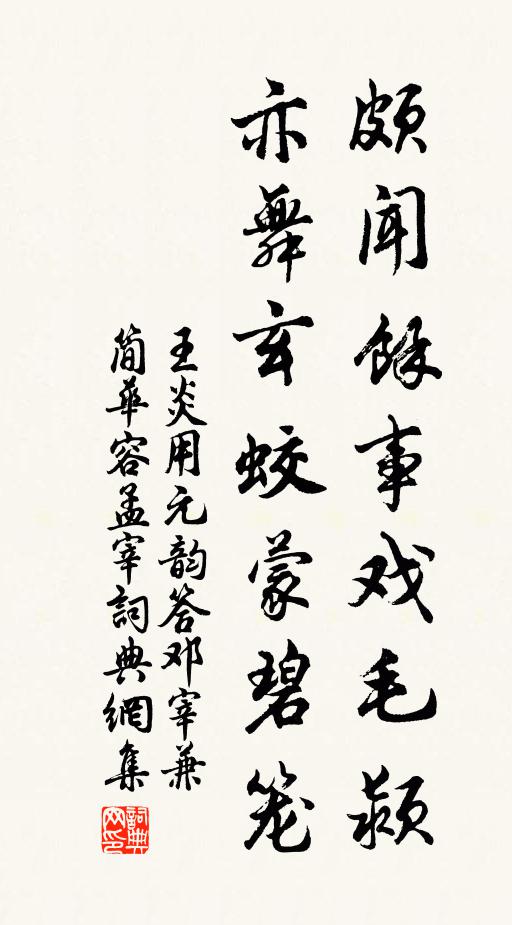 頗聞餘事戏毛颖
亦舞玄蛟蒙碧笼
王炎用元韵答邓宰兼
简華容孟宰詞典網集
詞典网印